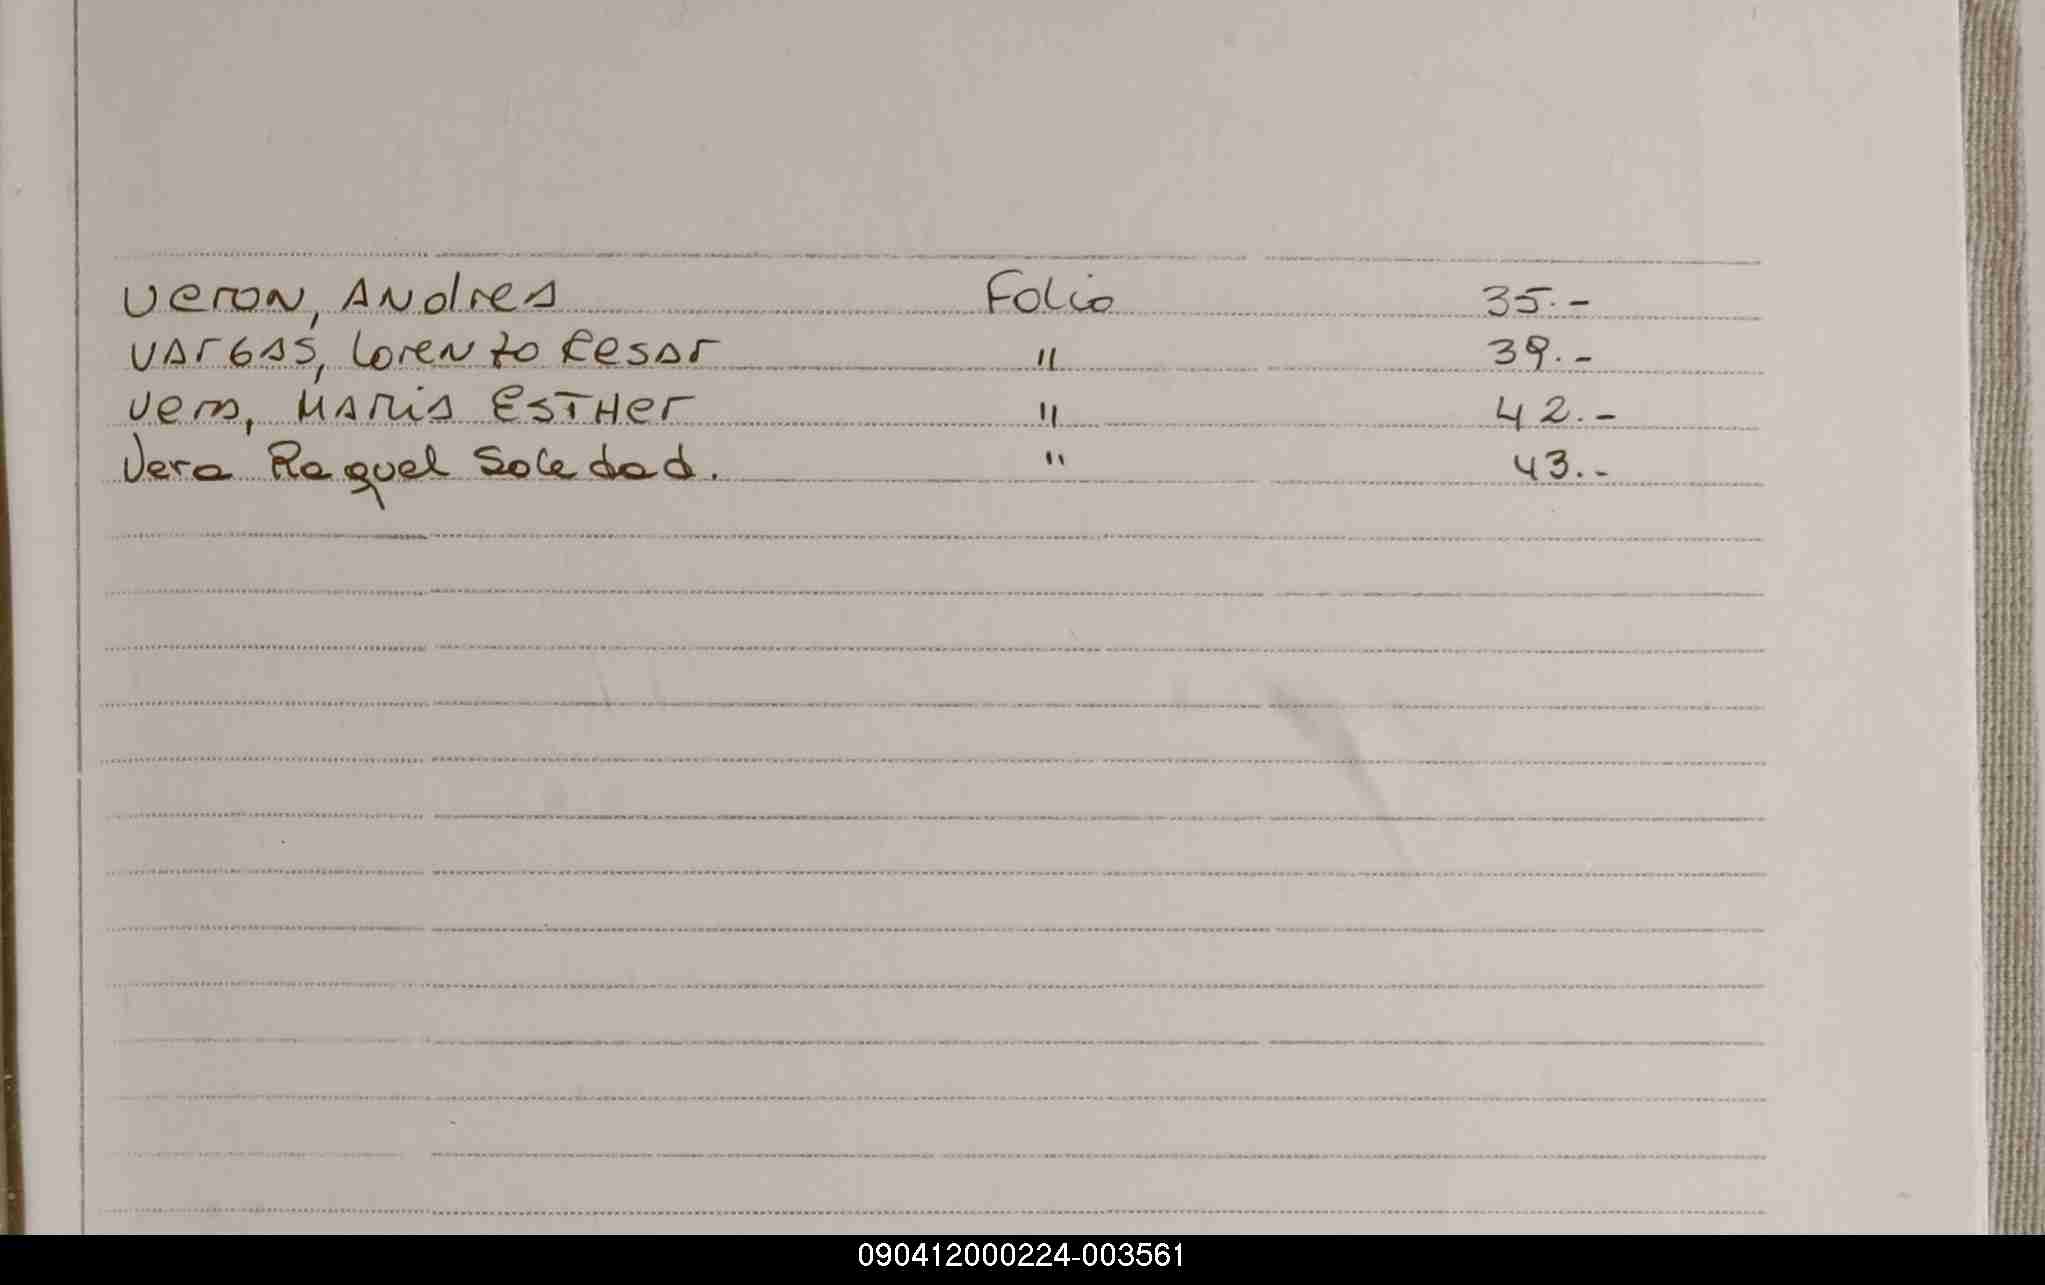 Veron, Andres Folio 35.-
Vargas, Lorenzo Cesar " 39.-
Vera, Maria Esther " 42.-
Vera Raquel Soledad. " 43.-
090412000224-003561